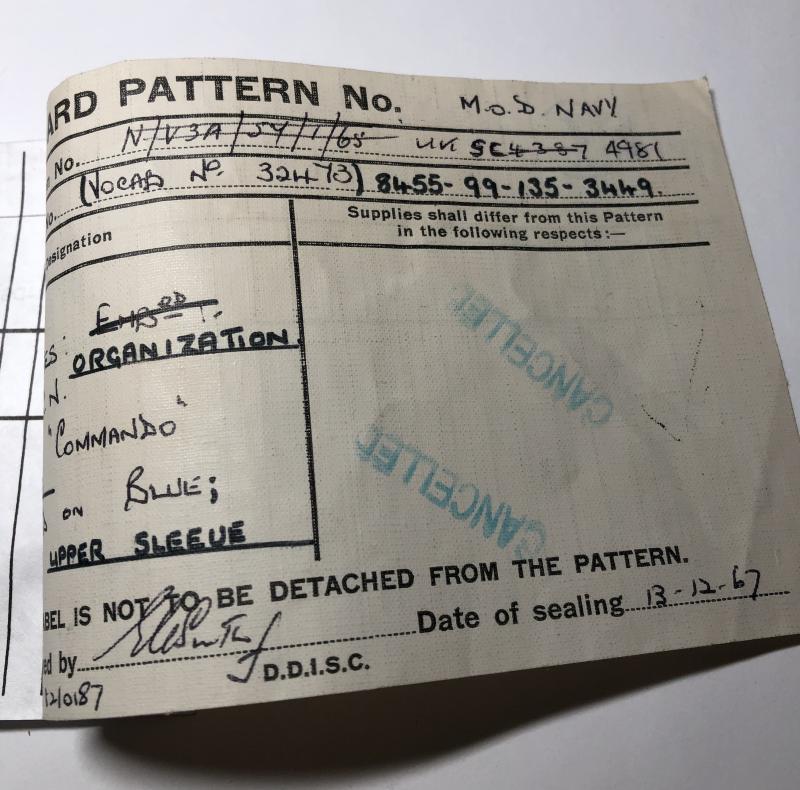 ARD PATTERN No. M.O.D. NAVY
No. N/V3A/54/1/65 UK SC4387 4981
No. (VOCAB No. 32473) 8455-99-135-3449.
esignation
Supplies shall differ from this Pattern
in the following respects:—
ES: EMBOD T.
N. ORGANIZATION
"COMMANDO"
ON BLUE;
UPPER SLEEVE
CANCELLED
CANCELLED
BEL IS NOT TO BE DETACHED FROM THE PATTERN.
ed by Date of sealing 13-12-67
D.D.I.S.C.
12/0187